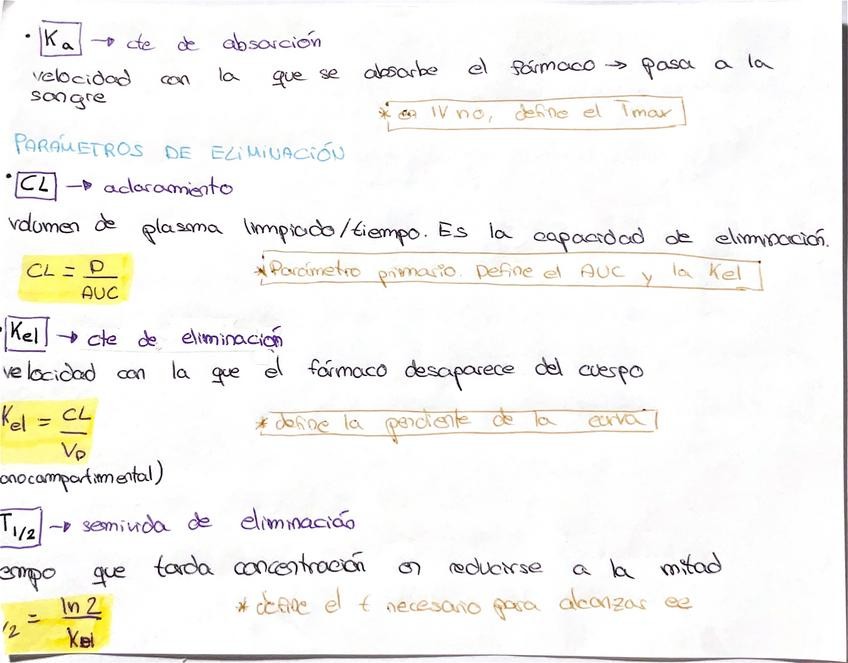 · Ka → cte de absorción
velocidad con la que se absorbe el fármaco → pasa a la
sangre
* en IV no, define el Tmax
PARÁMETROS DE ELIMINACIÓN
· CL → aclaramiento
volumen de plasma limpiado/tiempo. Es la capacidad de eliminación.
CL = D / AUC
* Parámetro primario. Define el AUC y la Kel
· Kel → cte de eliminación
velocidad con la que el fármaco desaparece del cuerpo
Kel = CL / VD
* define la pendiente de la curva
onocompartimental)
T1/2 → semivida de eliminación
empo que tarda concentración en reducirse a la mitad
/2 = ln 2 / Kel
* define el t necesario para alcanzar ee